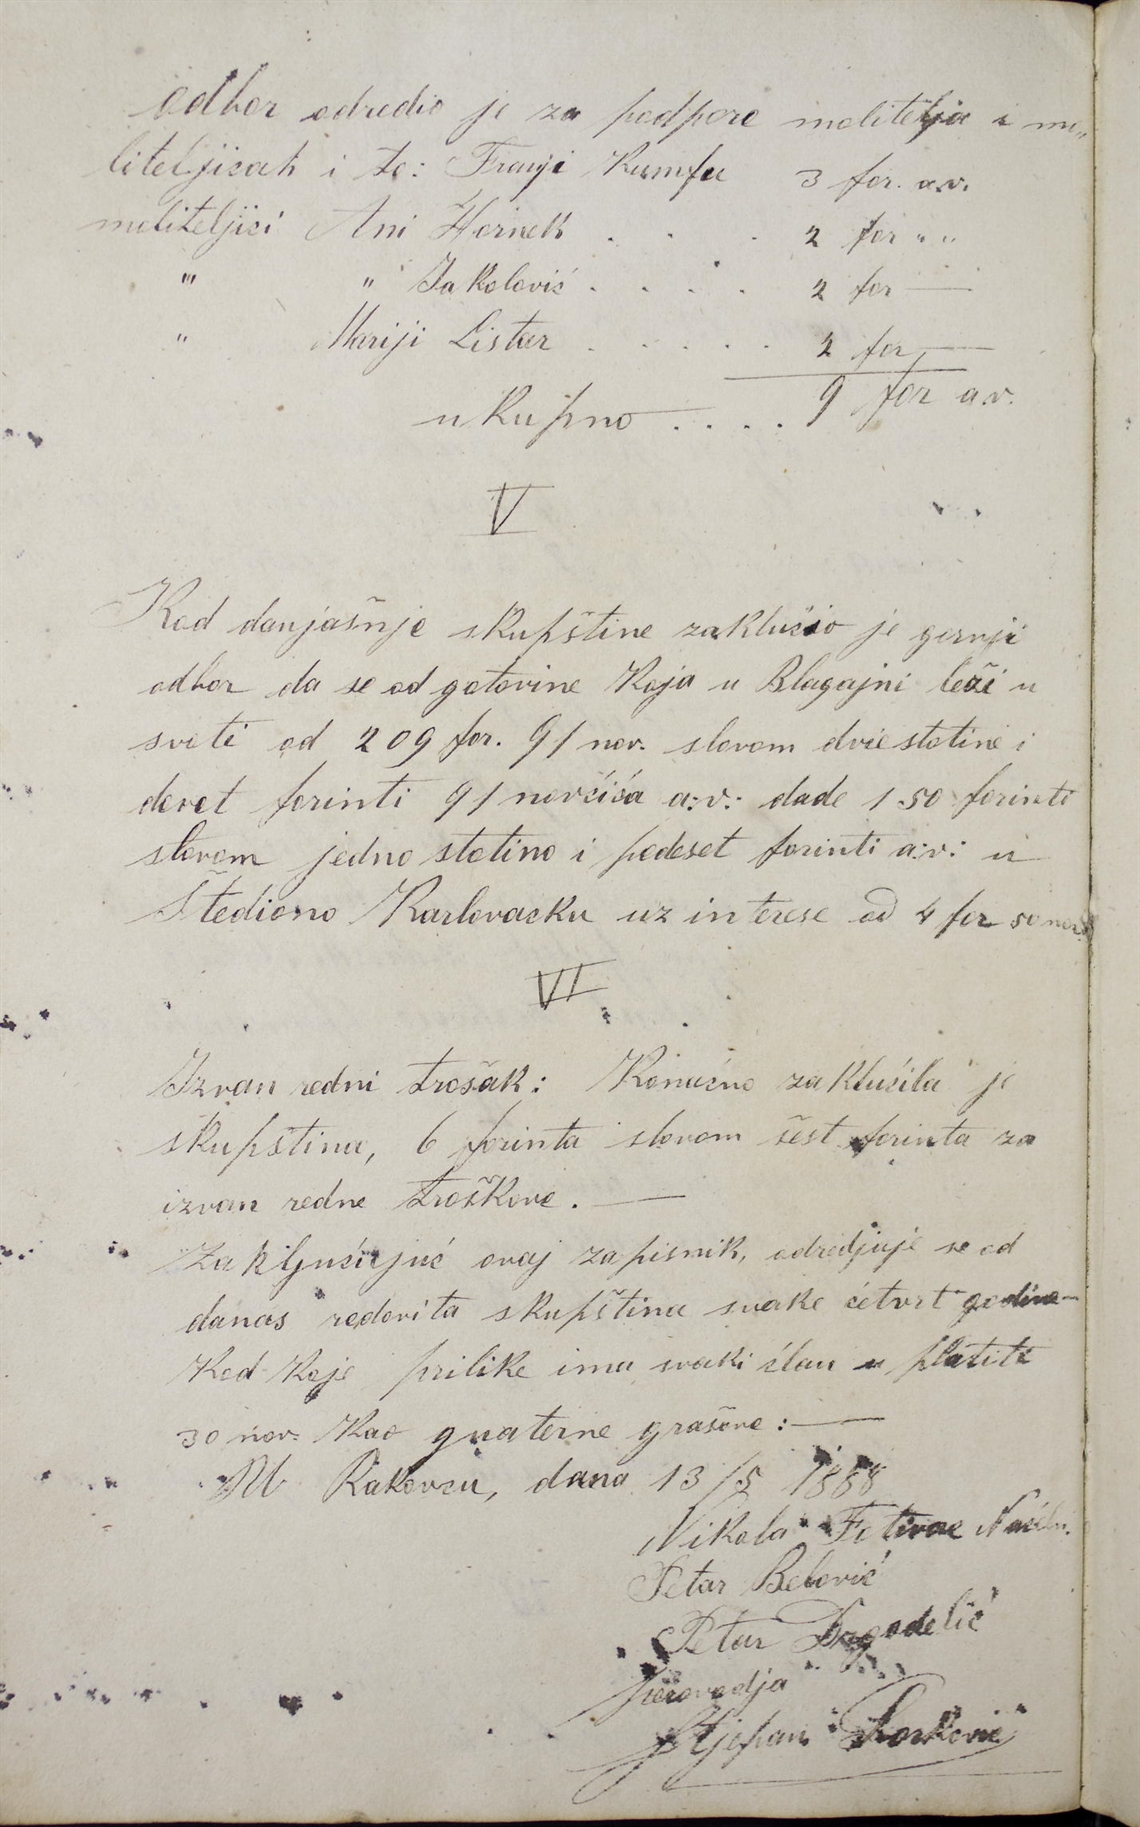 odbor odredio je za podpore molitelja i mo„
liteljicah i to: Franji Kumfu 3 for. a.v.
moliteljici Ani Hornek . . . 2 for „ „
"' " Jakolović . . . . 2 for —
" Mariji Listar . . . . . 2 for —
ukupno . . . . 9 for a.v.
V
Kod danjašnje skupštine zaklučio je gornji
odbor da se od gotovine koja u Blagajni leži u
svoti od 209 for. 91 nov. slovom dvie stotine i
devet forinti 91 novčića a:v: dade 150 forinti
slovom jedno stotino i pedeset forinti a:v: u
Štediono Karlovacku uz interese od 4 for 50 nov.
VI
Izvan redni trošak: Konačno zaklučila je
skupština, 6 forinta slovom šest forinta za
izvan redne troškove. —
Zakljućujuć ovaj zapisnik, odredjuje se od
danas redovita skupština svake četvrt godine —
kod koje prilike ima svaki član u platiti
30 nov. kao quaterne groševe: —
U Rakovcu, dana 13/5 1888
Nikola Fotivac Načeln.
Petar Belović
Petar Dragodelić
perovodja
Stjepan